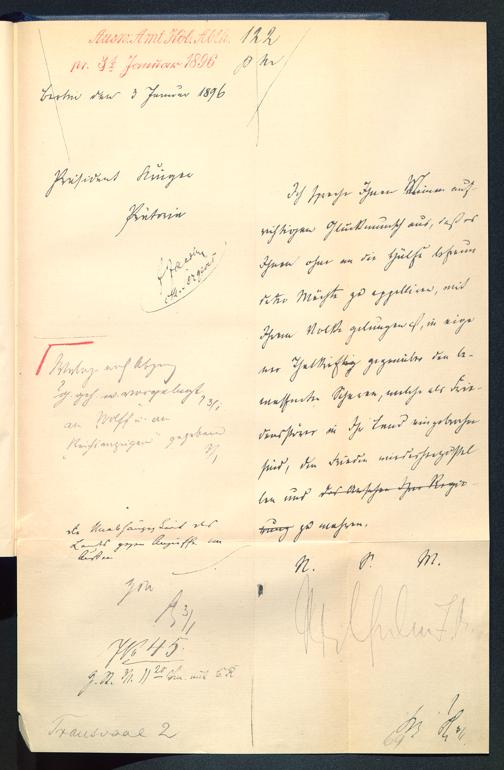 Ausw. Amt Kol. Abth. 122
pr. 3t Januar 1896
Berlin den 3 Januar 1896
Präsident Krüger
Pretoria
Ich spreche Ihnen Meinen auf-
richtigen Glückwunsch aus, daß es
Ihnen ohne an die Hülfe befreun
deter Mächte zu appelliren, mit
Ihrem Volke gelungen ist, in eige
ner Thatkraft gegenüber den be-
waffneten Scharen, welche als Frie-
densstörer in Ihr Land eingebrochen
sind, den Frieden wiederherzustel
len und das Ansehen Ihrer Regie-
rung zu wahren.
vorgelegt
an Wolff u. an
Reichsanzeiger gegeben
3/1
die Unabhängigkeit des
Landes gegen Angriffe von
Außen
3/1
No 45.
N. S. M.
Wilhelm I.R.
Transvaal 2